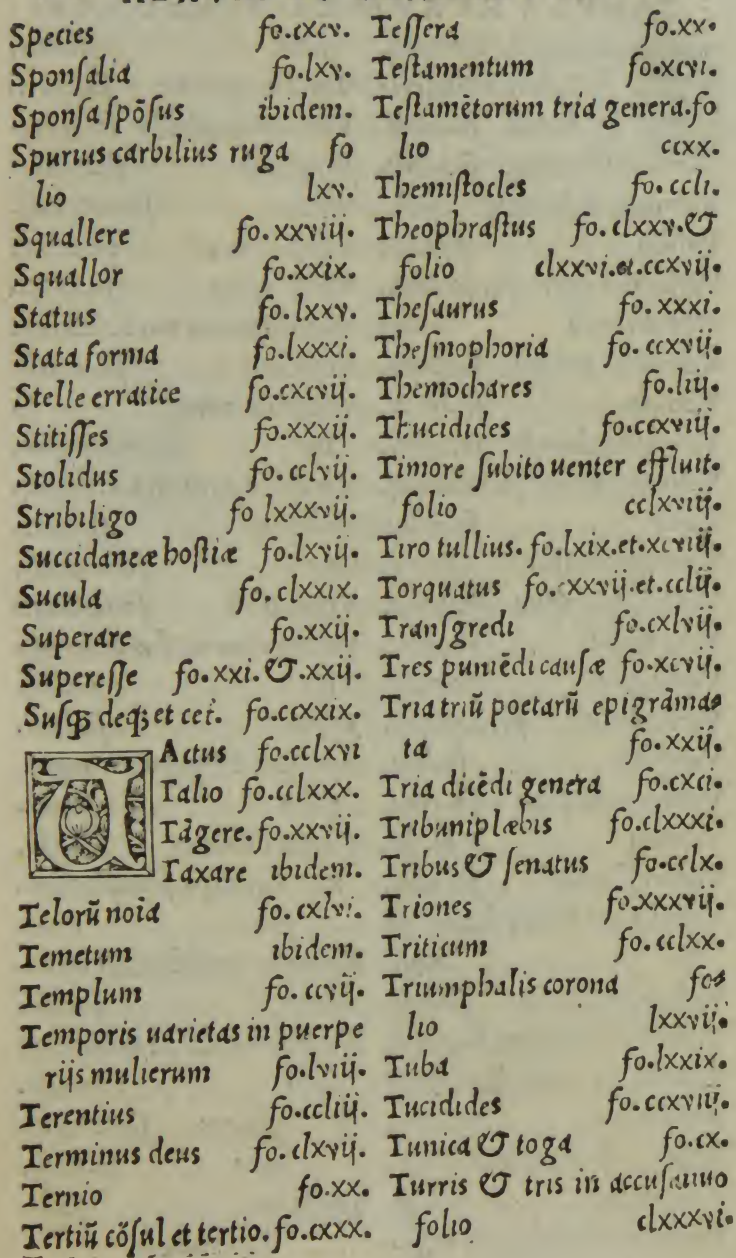 Species fo.cxcv.
Sponſalia fo.lxv.
Sponſa ſpõſus ibidem.
Spurius carbilius ruga fo
lio lxv.
Squallere fo.xxviij.
Squallor fo.xxix.
Statius fo.lxxv.
Stata forma fo.lxxxi.
Stelle erratice fo.cxcvij.
Stitiſſes fo.xxxij.
Stolidus fo.cclvij.
Stribiligo fo lxxxvij.
Succidaneæ hoſtiæ fo.lxvij.
Sucula fo.clxxix.
Superare fo.xxij.
Supereſſe fo.xxi.&.xxij.
Suſqꝫ deqꝫ et cet. fo.ccxxix.
TActus fo.cclxvi
Talio fo.cclxxx.
Tãgere.fo.xxvij.
Taxare ibidem.
Telorũ noĩa fo.cxlvi.
Temetum ibidem.
Templum fo.ccvij.
Temporis uarietas in puerpe
rijs mulierum fo.lviij.
Terentius fo.ccliij.
Terminus deus fo.clxvij.
Ternio fo.xx.
Tertiũ cõſul et tertio.fo.cxxx.
Teſſera fo.xx.
Teſtamentum fo.xcvi.
Teſtamẽtorum tria genera.fo
lio ccxx.
Themiſtocles fo.ccli.
Theophraſtus fo.clxxv.&
folio clxxvi.et.ccxvij.
Theſaurus fo.xxxi.
Theſmophoria fo.ccxvij.
Themochares fo.liij.
Thucidides fo.ccxviij.
Timore ſubito uenter effluit.
folio cclxviij.
Tiro tullius.fo.lxix.et.xcviij.
Torquatus fo.xxvij.et.cclij.
Tranſgredi fo.cxlvij.
Tres puniẽdi cauſæ fo.xcvij.
Tria triũ poetarũ epigrãma
ta fo.xxij.
Tria dicẽdi genera fo.cxci.
Tribuni plæbis fo.clxxxi.
Tribus & ſenatus fo.cclx.
Triones fo.xxxvij.
Triticum fo.cclxx.
Triumphalis corona fo
lio lxxvij.
Tuba fo.lxxix.
Tucidides fo.ccxviij.
Tunica & toga fo.cx.
Turris & tris in accuſatiuo
folio clxxxvi.